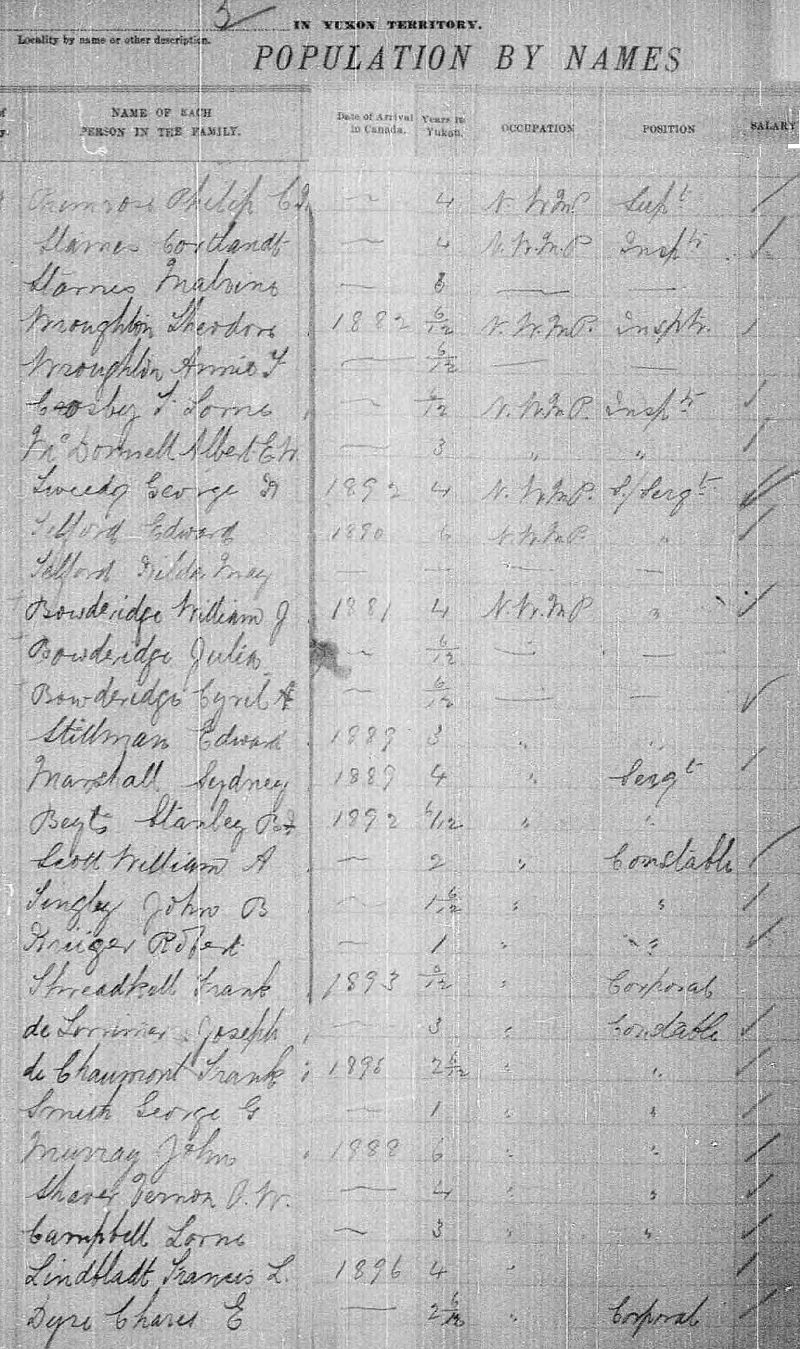 5
IN YUKON TERRITORY.
Locality by name or other description.
POPULATION BY NAMES
NAME OF EACH PERSON IN THE FAMILY. Date of Arrival in Canada. Years in Yukon. OCCUPATION POSITION SALARY
Primrose Philip C. — 4 N.W.M.P Supt
Starnes Cortlandt — 4 N.W.M.P Insptr
Starnes Malvine — — —
Wroughton Theodore 1882 6/12 N.W.M.P. Insptr.
Wroughton Annie F — 6/12 — —
Crosby F. Lorne — 6/12 N.W.M.P. Inspt
McDonnell Albert E. W. — 3 " "
Tweedy George 1892 4 N.W.M.P. S/Sergt
Telford Edward 1890 6 N.W.M.P. "
Telford Hilda May — — — —
Bowderidge William J 1881 4 N.W.M.P "
Bowderidge Julia — 6/12 — —
Bowderidge Cyril — 6/12 — —
Stillman Edward 1889 3 " "
Marshall Sydney 1889 4 " Sergt
Beyts Stanley 1892 6/12 " "
Scott William A — 2 " Constable
Tingley John B — 1 6/12 " "
Kruger Robert — 1 " "
Threadkell Frank 1893 6/12 " Corporal
de Lorrimier Joseph — 3 " Constable
de Chaumont Frank 1896 2 6/12 " "
Smith George G — 1 " "
Murray John 1988 6 " "
Shaver Vernon O. W. — 4 " "
Campbell Lorne — 3 " "
Lindbladt Francis L. 1896 4 "
Dyre Chares E — 2 6/12 " Corporal